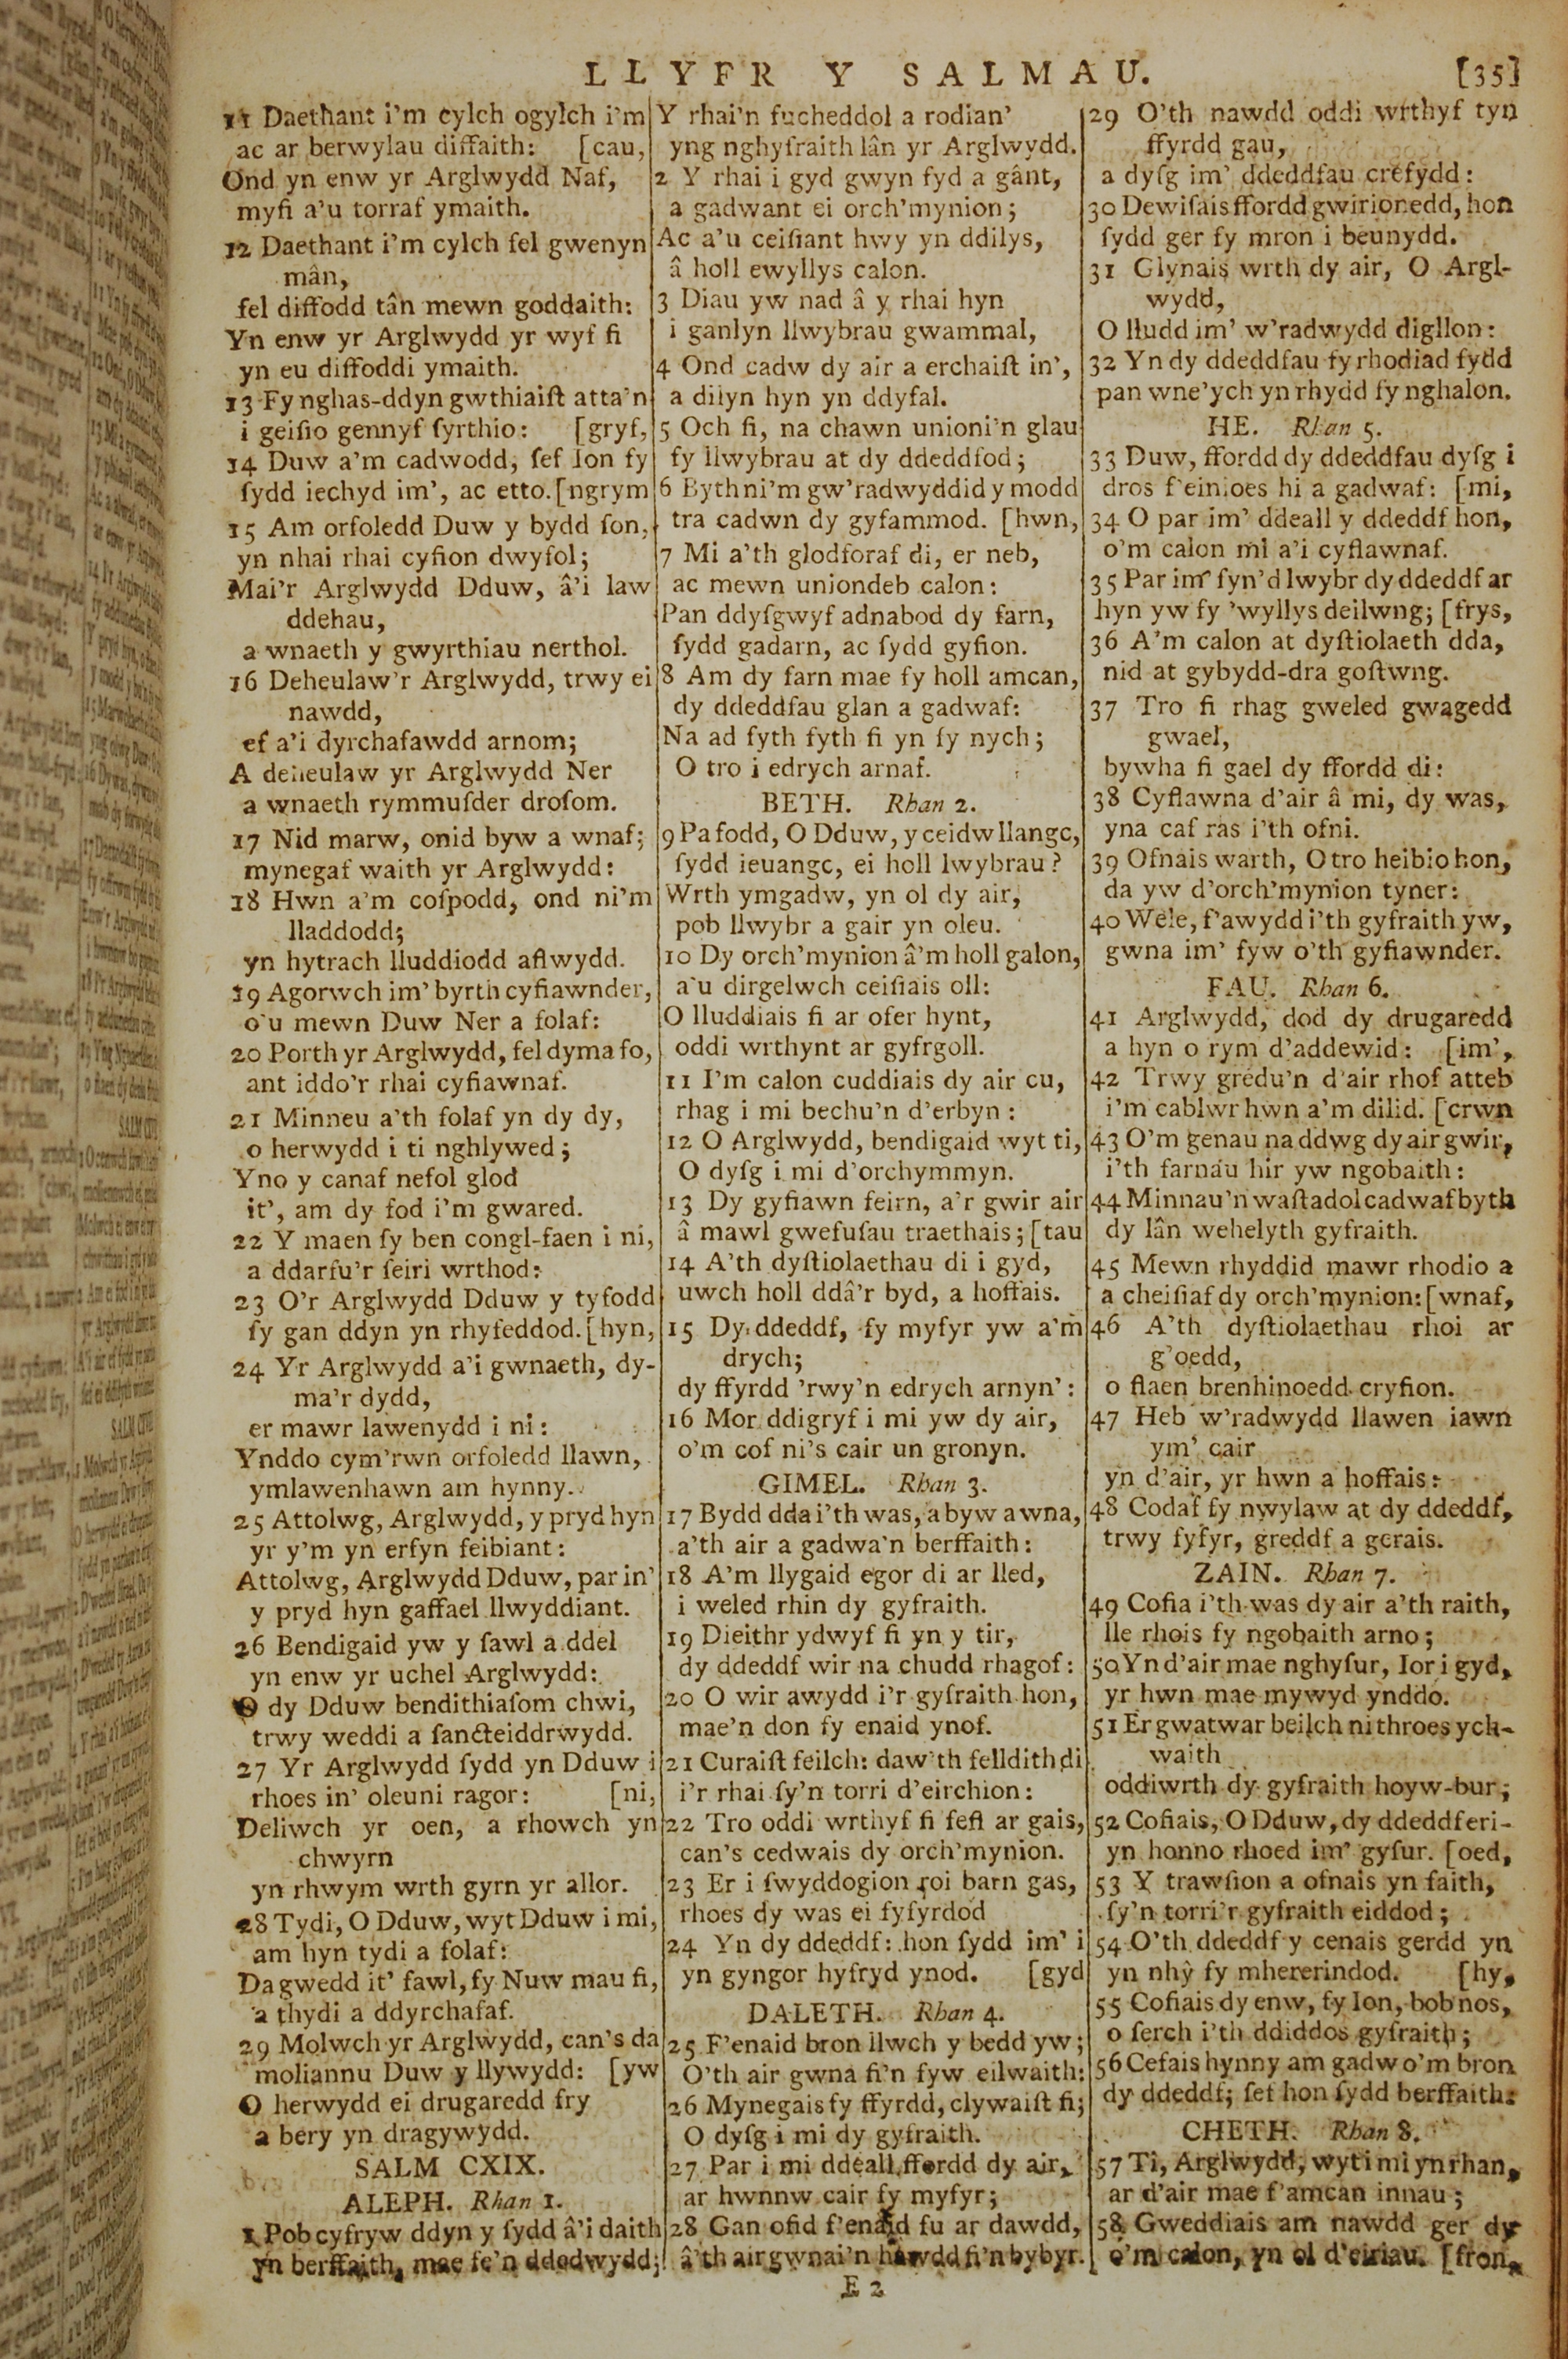 LLYFR Y SALMAU. [35]
11 Daethant i'm cylch ogylch i'm
ac ar berwylau diffaith: [cau,
Ond yn enw yr Arglwydd Naf,
myfi a'u torraf ymaith.
12 Daethant i'm cylch fel gwenyn
mân,
fel diffodd tân mewn goddaith:
Yn enw yr Arglwydd yr wyf fi
yn eu diffoddi ymaith.
13 Fy nghas-ddyn gwthiaiſt atta'n
i geiſio gennyf ſyrthio: [gryf,
14 Duw a'm cadwodd, ſef Ion fy
ſydd iechyd im', ac etto. [ngrym
15 Am orfoledd Duw y bydd ſon,
yn nhai rhai cyfion dwyfol;
Mai'r Arglwydd Dduw, â'i law
ddehau,
a wnaeth y gwyrthiau nerthol.
16 Deheulaw'r Arglwydd, trwy ei
nawdd,
ef a'i dyrchafawdd arnom;
A deheulaw yr Arglwydd Ner
a wnaeth rymmuſder droſom.
17 Nid marw, onid byw a wnaf;
mynegaf waith yr Arglwydd:
18 Hwn a'm coſpodd, ond ni'm
lladdodd;
yn hytrach lluddiodd aflwydd.
19 Agorwch im' byrth cyfiawnder,
o'u mewn Duw Ner a folaf:
20 Porth yr Arglwydd, fel dyma fo,
ant iddo'r rhai cyfiawnaf.
21 Minneu a'th folaf yn dy dy,
o herwydd i ti nghlywed;
Yno y canaf nefol glod
it', am dy fod i'm gwared.
22 Y maen ſy ben congl-faen i ni,
a ddarfu'r ſeiri wrthod:
23 O'r Arglwydd Dduw y tyfodd
ſy gan ddyn yn rhyfeddod. [hyn,
24 Yr Arglwydd a'i gwnaeth, dy-
ma'r dydd,
er mawr lawenydd i ni:
Ynddo cym'rwn orfoledd llawn,
ymlawenhawn am hynny.
25 Attolwg, Arglwydd, y pryd hyn
yr y'm yn erfyn ſeibiant:
Attolwg, Arglwydd Dduw, par in'
y pryd hyn gaffael llwyddiant.
26 Bendigaid yw y ſawl a ddel
yn enw yr uchel Arglwydd:
O dy Dduw bendithiaſom chwi,
trwy weddi a ſancteiddrwydd.
27 Yr Arglwydd ſydd yn Dduw i
rhoes in' oleuni ragor: [ni,
Deliwch yr oen, a rhowch yn
chwyrn
yn rhwym wrth gyrn yr allor.
28 Tydi, O Dduw, wyt Dduw i mi,
am hyn tydi a folaf:
Da gwedd it' fawl, fy Nuw mau fi,
a thydi a ddyrchafaf.
29 Molwch yr Arglwydd, can's da
moliannu Duw y llywydd: [yw
O herwydd ei drugaredd fry
a bery yn dragywydd.
SALM CXIX.
ALEPH. Rhan 1.
1 Pob cyfryw ddyn y ſydd â'i daith
yn berffaith, mae fe'n ddedwydd;
Y rhai'n fucheddol a rodian'
yng nghyfraith lân yr Arglwydd.
2 Y rhai i gyd gwyn fyd a gânt,
a gadwant ei orch'mynion;
Ac a'u ceiſiant hwy yn ddilys,
â holl ewyllys calon.
3 Diau yw nad â y rhai hyn
i ganlyn llwybrau gwammal,
4 Ond cadw dy air a erchaiſt in',
a dilyn hyn yn ddyfal.
5 Och fi, na chawn unioni'n glau
fy llwybrau at dy ddeddfod;
6 Byth ni'm gw'radwyddid y modd
tra cadwn dy gyfammod. [hwn,
7 Mi a'th glodforaf di, er neb,
ac mewn uniondeb calon:
Pan ddyſgwyf adnabod dy farn,
ſydd gadarn, ac ſydd gyfion.
8 Am dy farn mae fy holl amcan,
dy ddeddfau glan a gadwaf:
Na ad fyth fyth fi yn fy nych;
O tro i edrych arnaf.
BETH. Rhan 2.
9 Pa fodd, O Dduw, y ceidw llangc,
ſydd ieuangc, ei holl lwybrau?
Wrth ymgadw, yn ol dy air,
pob llwybr a gair yn oleu.
10 Dy orch'mynion â'm holl galon,
a'u dirgelwch ceiſiais oll:
O lluddiais fi ar ofer hynt,
oddi wrthynt ar gyfrgoll.
11 I'm calon cuddiais dy air cu,
rhag i mi bechu'n d'erbyn:
12 O Arglwydd, bendigaid wyt ti,
O dyſg i mi d'orchymmyn.
13 Dy gyfiawn feirn, a'r gwir air
â mawl gwefuſau traethais; [tau
14 A'th dyſtiolaethau di i gyd,
uwch holl ddâ'r byd, a hoffais.
15 Dy ddeddf, fy myfyr yw a'm
drych;
dy ffyrdd 'rwy'n edrych arnyn':
16 Mor ddigryf i mi yw dy air,
o'm cof ni's cair un gronyn.
GIMEL. Rhan 3.
17 Bydd dda i'th was, a byw a wna,
a'th air a gadwa'n berffaith:
18 A'm llygaid egor di ar lled,
i weled rhin dy gyfraith.
19 Dieithr ydwyf fi yn y tir,
dy ddeddf wir na chudd rhagof:
20 O wir awydd i'r gyfraith hon,
mae'n don fy enaid ynof.
21 Curaiſt feilch: daw'th felldith di
i'r rhai ſy'n torri d'eirchion:
22 Tro oddi wrthyf fi ſefl ar gais,
can's cedwais dy orch'mynion.
23 Er i ſwyddogion roi barn gas,
rhoes dy was ei fyfyrdod
24 Yn dy ddeddf: hon ſydd im' i
yn gyngor hyfryd ynod. [gyd
DALETH. Rhan 4.
25 F'enaid bron llwch y bedd yw;
O'th air gwna fi'n fyw eilwaith:
26 Mynegais fy ffyrdd, clywaiſt fi;
O dyſg i mi dy gyfraith.
27 Par i mi ddeall ffordd dy air,
ar hwnnw cair fy myfyr;
28 Gan ofid f'enaid fu ar dawdd,
â'th air gwnai'n hawdd fi'n bybyr.
E 2
29 O'th nawdd oddi wrthyf tyn
ffyrdd gau,
a dyſg im' ddeddfau crefydd:
30 Dewiſais ffordd gwirionedd, hon
ſydd ger fy mron i beunydd.
31 Glynais wrth dy air, O Argl-
wydd,
O lludd im' w'radwydd digllon:
32 Yn dy ddeddfau fy rhodiad fydd
pan wne'ych yn rhydd fy nghalon.
HE. Rhan 5.
33 Duw, ffordd dy ddeddfau dyſg i
dros f'einioes hi a gadwaf: [mi,
34 O par im' ddeall y ddeddf hon,
o'm calon mi a'i cyflawnaf.
35 Par im' fyn'd lwybr dy ddeddf ar
hyn yw fy 'wyllys deilwng; [frys,
36 A'm calon at dyſtiolaeth dda,
nid at gybydd-dra goſtwng.
37 Tro fi rhag gweled gwagedd
gwael,
bywha fi gael dy ffordd di:
38 Cyflawna d'air â mi, dy was,
yna caf ras i'th ofni.
39 Ofnais warth, O tro heibio hon,
da yw d'orch'mynion tyner:
40 Wele, f'awydd i'th gyfraith yw,
gwna im' fyw o'th gyfiawnder.
FAU. Rhan 6.
41 Arglwydd, dod dy drugaredd
a hyn o rym d'addewid: [im',
42 Trwy gredu'n d'air rhof atteb
i'm cablwr hwn a'm dilid. [crwn
43 O'm genau na ddwg dy air gwir,
i'th farnau hir yw ngobaith:
44 Minnau'n waſtadol cadwaf byth
dy lân wehelyth gyfraith.
45 Mewn rhyddid mawr rhodio a
a cheiſiaf dy orch'mynion: [wnaf,
46 A'th dyſtiolaethau rhoi ar
g'oedd,
o flaen brenhinoedd cryfion.
47 Heb w'radwydd llawen iawn
ym' cair
yn d'air, yr hwn a hoffais:
48 Codaf fy nwylaw at dy ddeddf,
trwy fyfyr, greddf a gerais.
ZAIN. Rhan 7.
49 Cofia i'th was dy air a'th raith,
lle rhois fy ngobaith arno;
50 Yn d'air mae nghyſur, Ior i gyd,
yr hwn mae mywyd ynddo.
51 Er gwatwar beilch ni throes ych-
waith
oddiwrth dy gyfraith hoyw-bur;
52 Cofiais, O Dduw, dy ddeddf eri-
yn honno rhoed im' gyſur. [oed,
53 Y trawſion a ofnais yn faith,
ſy'n torri'r gyfraith eiddod;
54 O'th ddeddf y cenais gerdd yn
yn nhŷ fy mhererindod. [hy,
55 Cofiais dy enw, fy Ion, bob nos,
o ſerch i'th ddiddos gyfraith;
56 Cefais hynny am gadw o'm bron
dy ddeddf; ſef hon ſydd berffaith:
CHETH. Rhan 8.
57 Ti, Arglwydd, wyt i mi yn rhan,
ar d'air mae f'amcan innau;
58 Gweddiais am nawdd ger dy
o'm calon, yn ol d'eiriau. [fron,